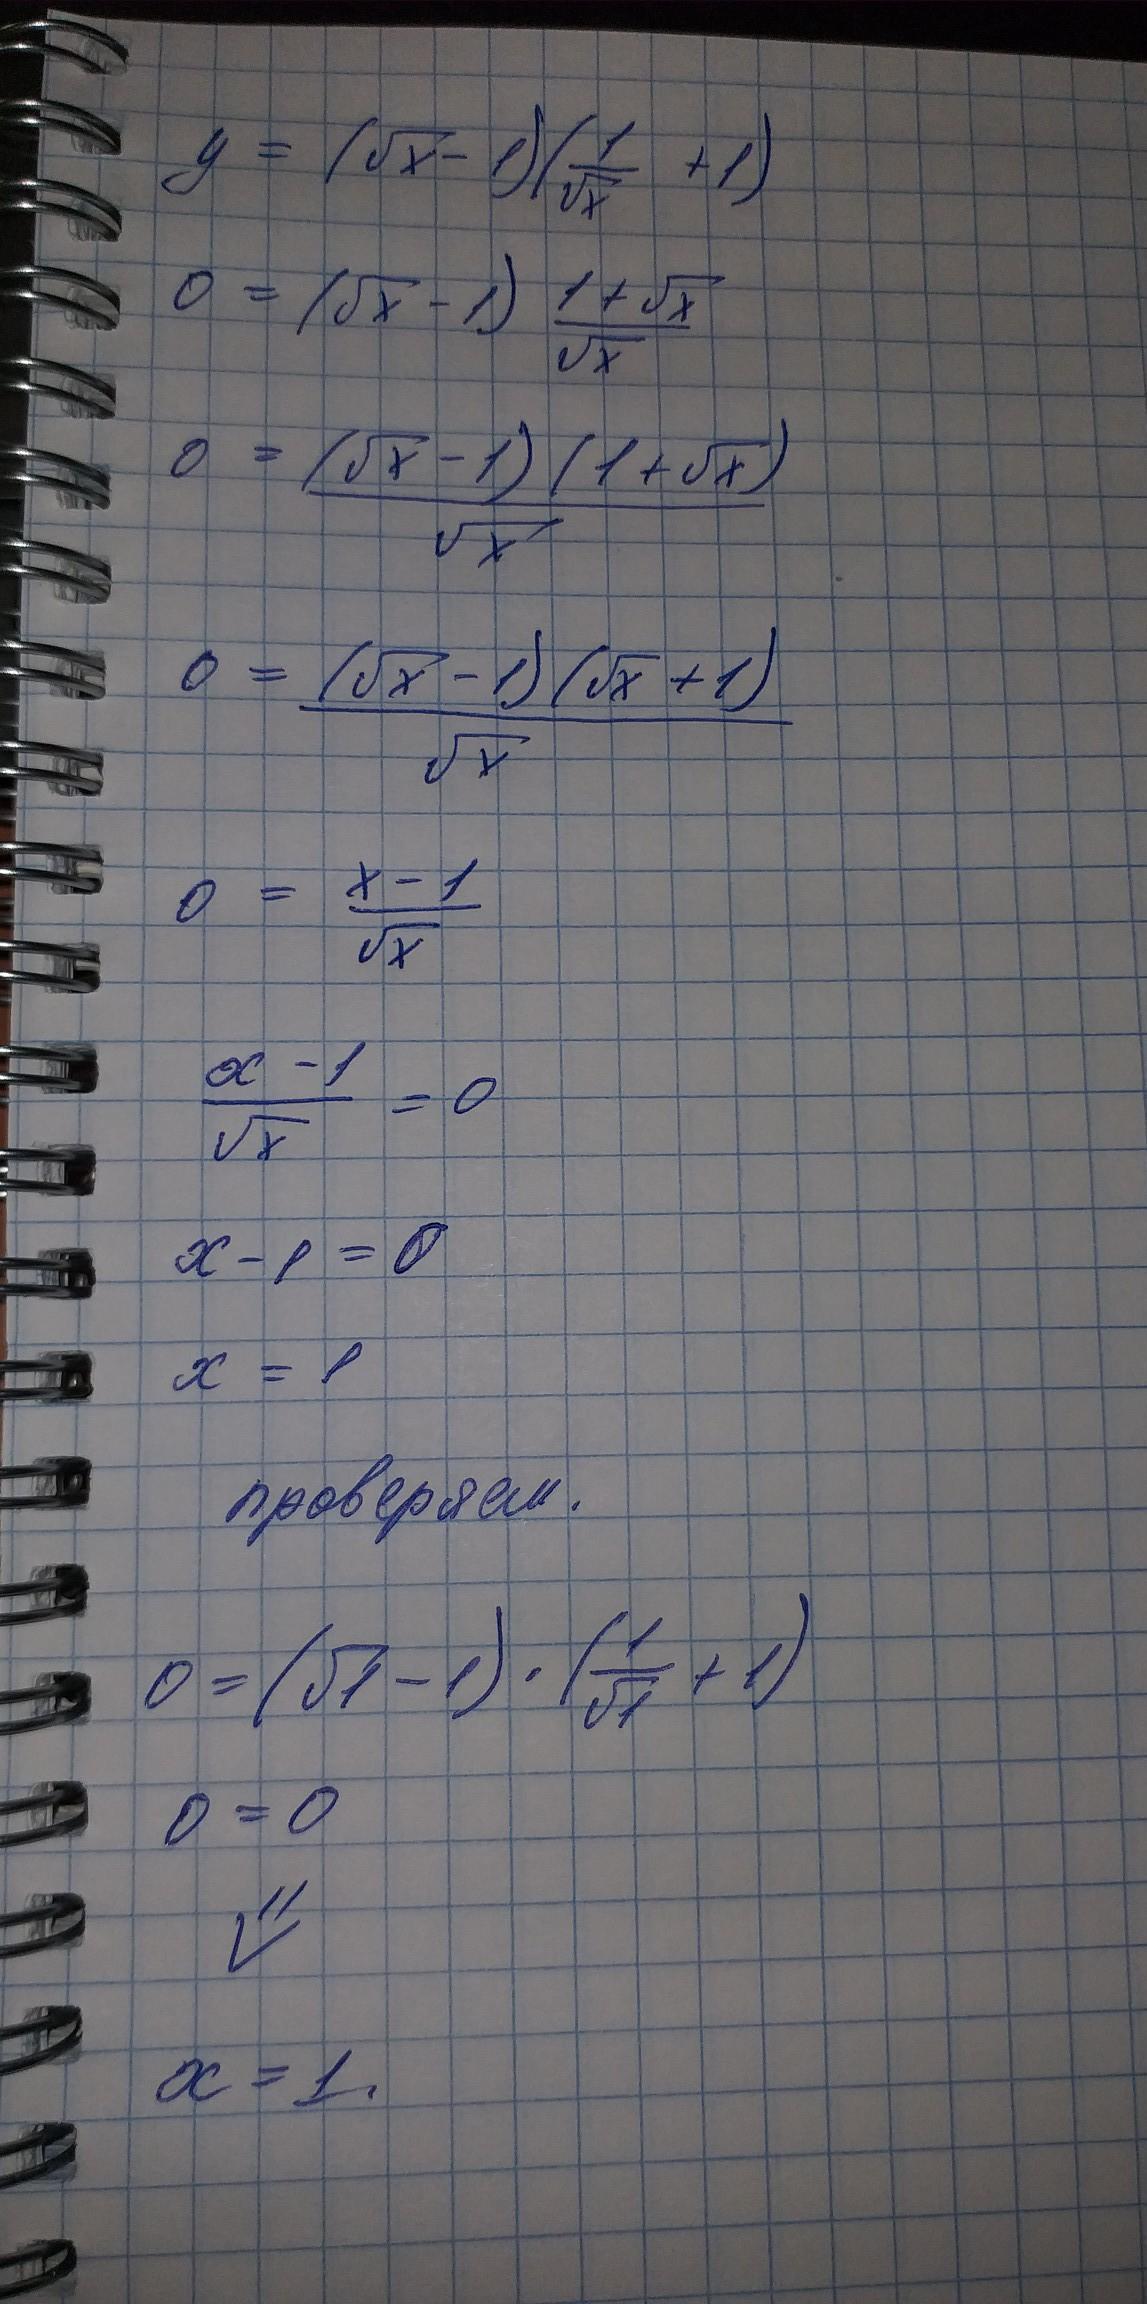 y = (√x - 1)(1/√x + 1)
0 = (√x - 1) (1 + √x)/√x
0 = (√x - 1)(1 + √x)/√x
0 = (√x - 1)(√x + 1)/√x
0 = (x - 1)/√x
(x - 1)/√x = 0
x - 1 = 0
x = 1
проверяем.
0 = (√1 - 1) · (1/√1 + 1)
0 = 0
x = 1.